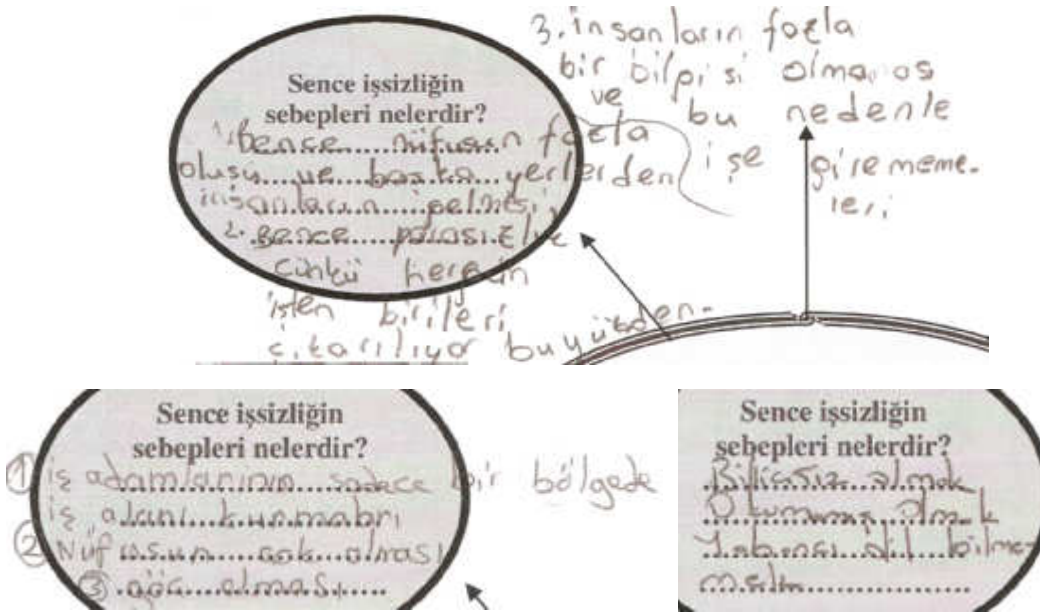 Sence işsizliğin
sebepleri nelerdir?
1. Bence nüfusun fazla
oluşu ve başka yerlerden
insanların gelmesi
2. Bence parasızlık
çünkü hergün
işten birileri
çıkarılıyor buyüzden.
3. insanların fazla
bir bilgisi olmaması
ve bu nedenle
işe girememe-
leri
Sence işsizliğin
sebepleri nelerdir?
① iş adamlarının sadece bir bölgede
iş alanı kurmaları
② Nüfusun çok olması
③ göç olması
Sence işsizliğin
sebepleri nelerdir?
olmak
Okumamış olmak
Yabancı dil bilme-
mek